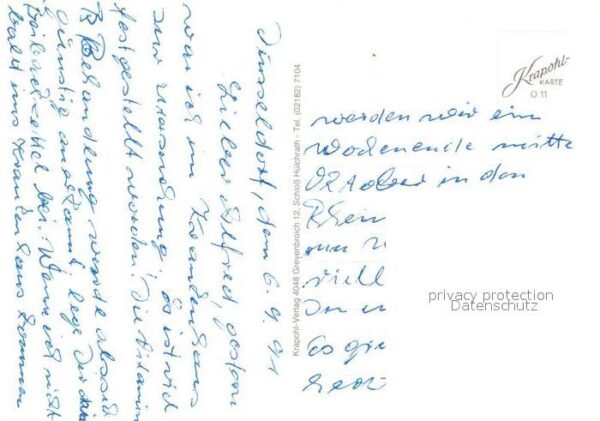 Düsseldorf, den 6.9.91
Lieber Alfred, gestern
war ich im Krankenhaus
zur Untersuchung. Es ist viel
festgestellt worden! Die Vitamin
B Behandlung wurde als
günstig anerkannt, lege Dir den
bei. Wenn ich nicht
bald ins Krankenhaus komme
werden wir ein
Wochenende mitte
Oktober in den
Rhein
nun
viell
Du
Es grü
herz
Krapohl-Verlag 4048 Grevenbroich 12, Schloß Hülchrath - Tel. (02182) 7104
Krapohl-
KARTE
O 11
privacy protection
Datenschutz